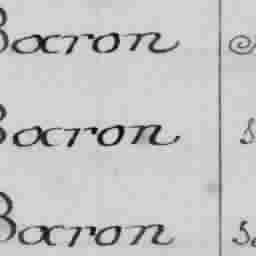 Bacron
Bacron
Bacron